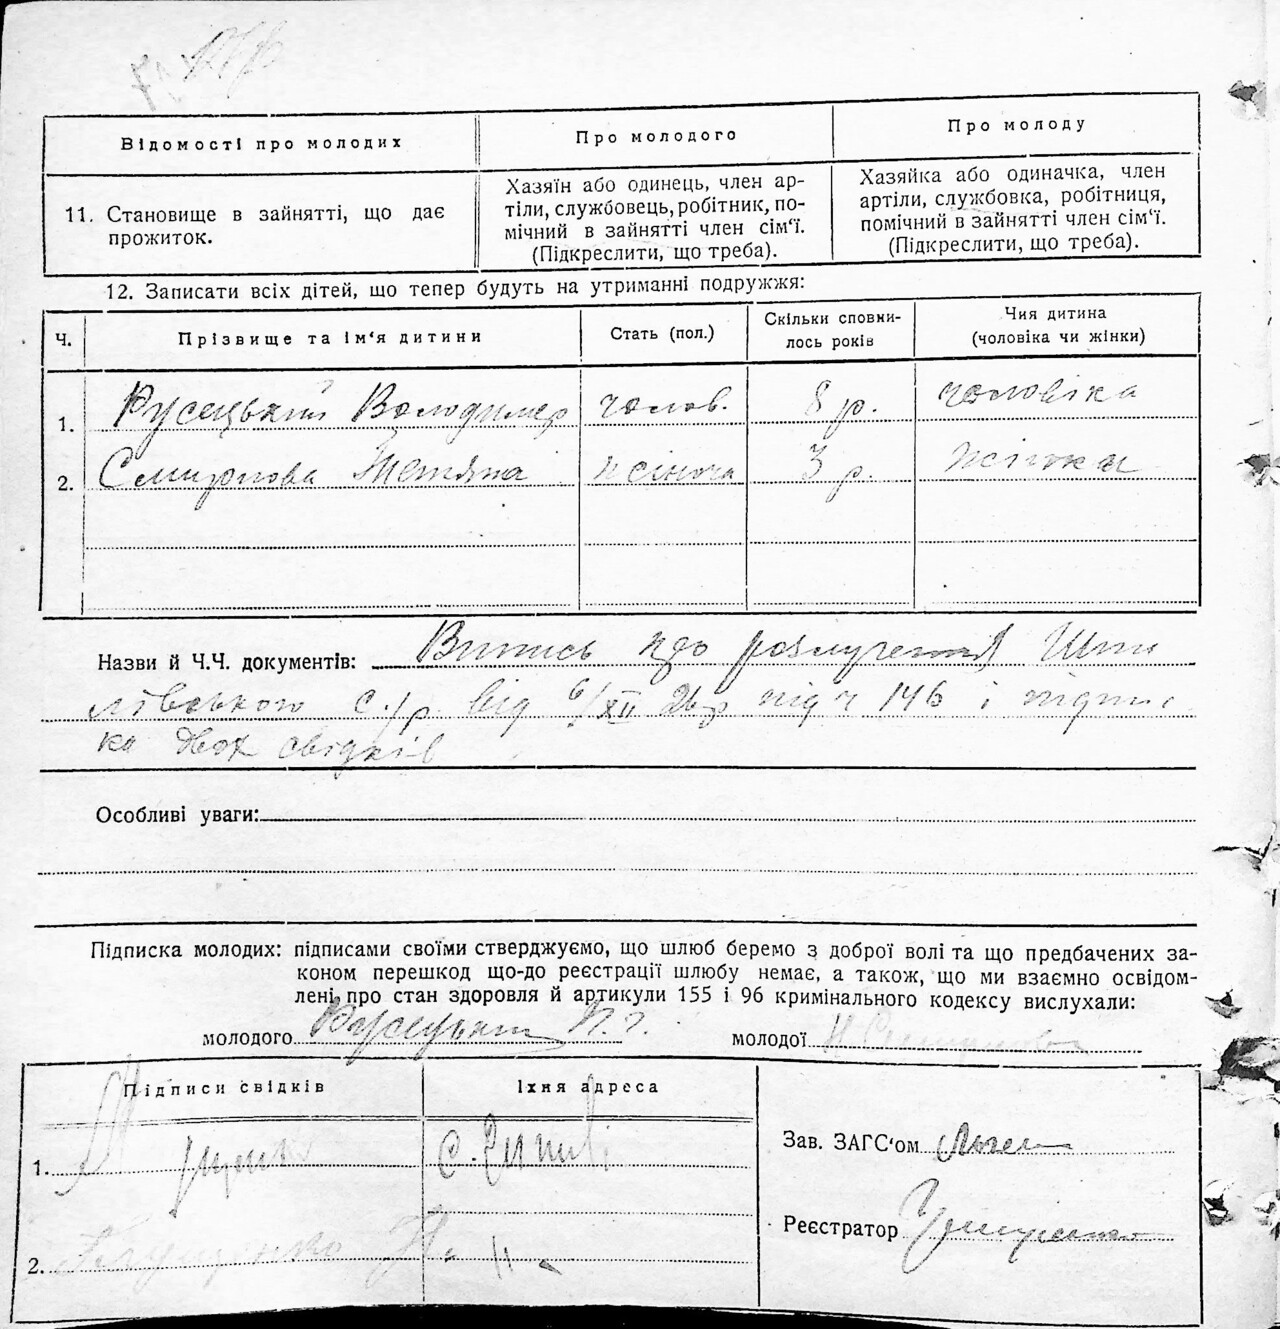 Відомості про молодих
Про молодого
Про молоду
11. Становище в зайнятті, що дає
прожиток.
Хазяїн або одинець, член ар-
тіли, службовець, робітник, по-
мічний в зайнятті член сім‘ї.
(Підкреслити, що треба).
Хазяйка або одиначка, член
артіли, службовка, робітниця,
помічний в зайнятті член сім‘ї.
(Підкреслити, що треба).
12. Записати всіх дітей, що тепер будуть на утриманні подружжя:
Ч.
Прізвище та ім‘я дитини
Стать (пол.)
Скільки сповни-
лось років
Чия дитина
(чоловіка чи жінки)
1. Русецький Володимер чолов. 8 р. чоловіка
2. Смирнова Тетяна жіноча 3 р. жінки
Назви й Ч.Ч. документів: Випись про розлучення
с/р від 6/XII 26 р під ч 146 і підпис
ка двох свідків
Особливі уваги:
Підписка молодих: підписами своїми стверджуємо, що шлюб беремо з доброї волі та що предбачених за-
коном перешкод що-до реєстрації шлюбу немає, а також, що ми взаємно освідом-
лені про стан здоровля й артикули 155 і 96 кримінального кодексу вислухали:
молодого Русецький П. Г.
молодої Н Смирнова
Підписи свідків
Їхня адреса
1.
с.
2. Глущенко Н. "
Зав. ЗАГС‘ом
Реєстратор